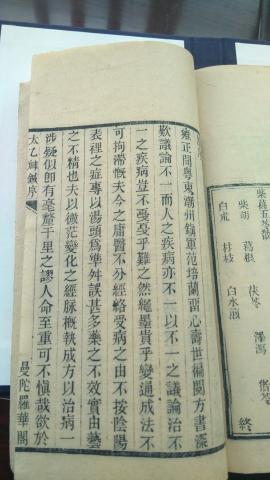 雍正間粤東潮州鎮軍范培蘭畱心濟世徧閱方書深
歎議論不一而人之疾病亦不一以不一之議論治不
一之疾病豈不戞戞乎難之然繩墨貴乎變通成法不
可拘滯慨夫今之庸醫不分經絡受病之由不按陰陽
表裡之症專以湯頭爲準舛誤甚多藥之不效實由藝
之不精也夫以微茫變化之經脈槪執成方以治病一
涉疑似卽有毫釐千里之謬人命至重可不慎哉欲於
太乙神鍼序
曼陀羅華閣
柴桂五苓散
柴胡 葛根 茯苓 澤瀉
白朮 桂枝 白水煎
終